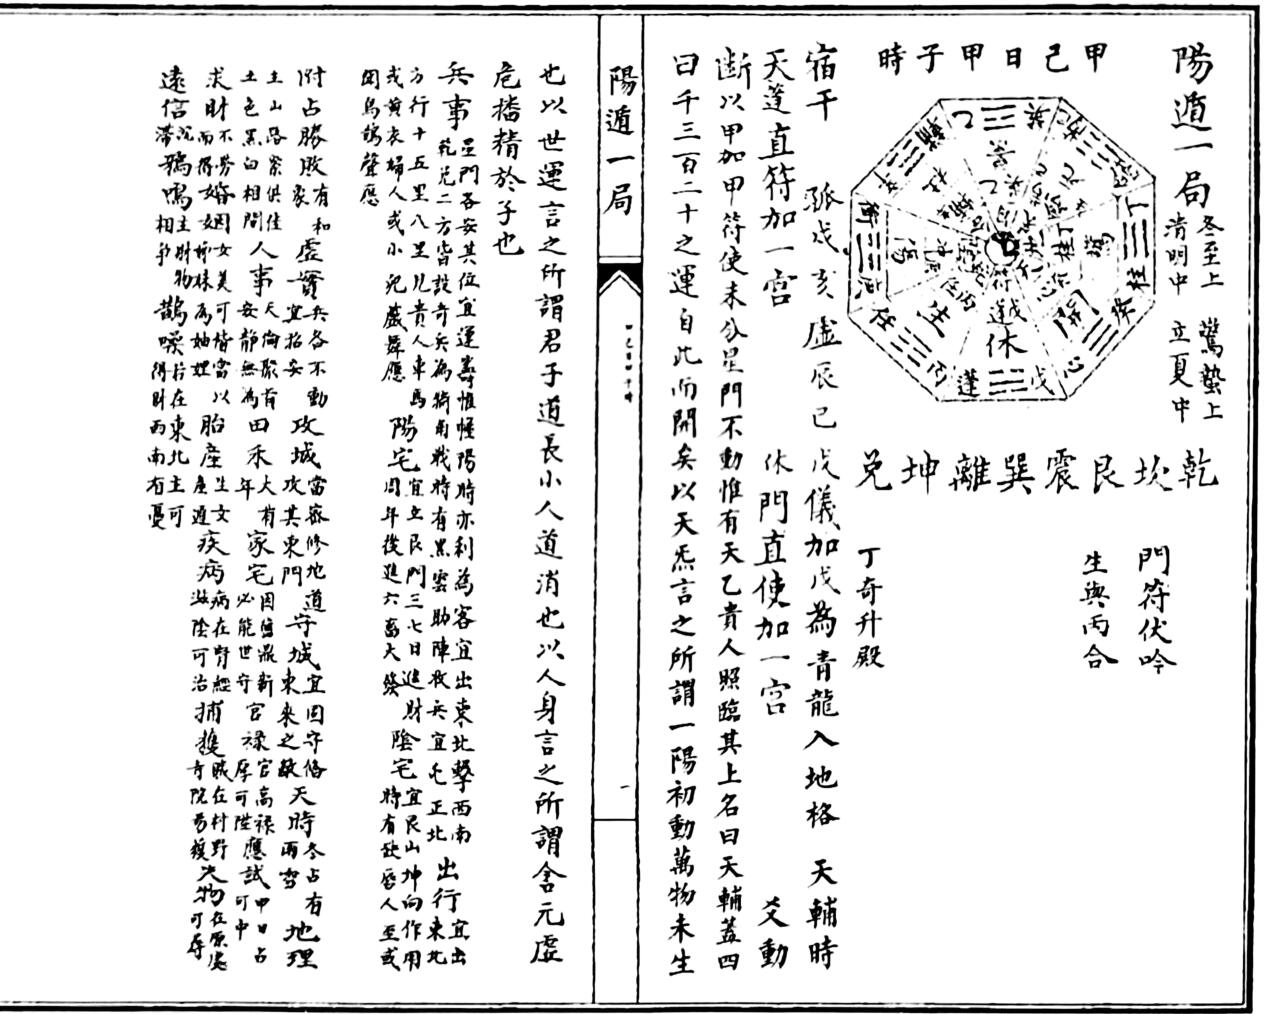 陽遁一局
冬至上 驚蟄上
清明中 立夏中
甲己日甲子時
乾坎艮震巽離坤兌
門符伏吟
生與丙合
丁奇升殿
宿干 孤戌亥 虛辰巳 戊儀加戊為青龍入地格 天輔時
天蓬直符加一宮 休門直使加一宮 爻動
斷以甲加甲符使未分星門不動惟有天乙貴人照臨其上名曰天輔蓋四
曰千三百二十之運自此而開矣以天炁言之所謂一陽初動萬物未生
陽遁一局
甲己日甲子時
一
也以世運言之所謂君子道長小人道消也以人身言之所謂含元虛
危播精於子也
兵事 星門各安其位宜運籌惟幄陽時亦利為客宜出東北擊西南
乾兌二方皆設奇兵為犄角戰時有黑雲助陣收兵宜屯正北 出行 宜出東北
方行十五里八里見貴人車馬 陽宅 宜立艮門三七日進財 陰宅 宜艮山坤向作用
或黃衣婦人或小兒戲舞應 周年後進六畜大發 時有缺唇人至或
聞烏鵲聲應
附占 勝敗 有和象 虛實 兵各不動宜招安 攻城 當審修地道攻其東門 守城 宜固守俻東來之敵 天時 冬占有雨雪 地理
主山路縈俱佳土色黑白相間 人事 天倫聚首安靜無為 田禾 大有年 家宅 因舊鼎新必能世守 官祿 官高祿厚可陞 應試 甲日占可中
求財 不勞而得 婚姻 女美可偕當以姊妹為妯娌 胎產 生女產遲 疾病 病在腎經滋陰可治 捕獲 賊在村野寺院易獲 失物 在原處可尋
遠信 沉滯 鴉鳴 主財物相爭 鵲噪 行在東北主可得財西南有憂